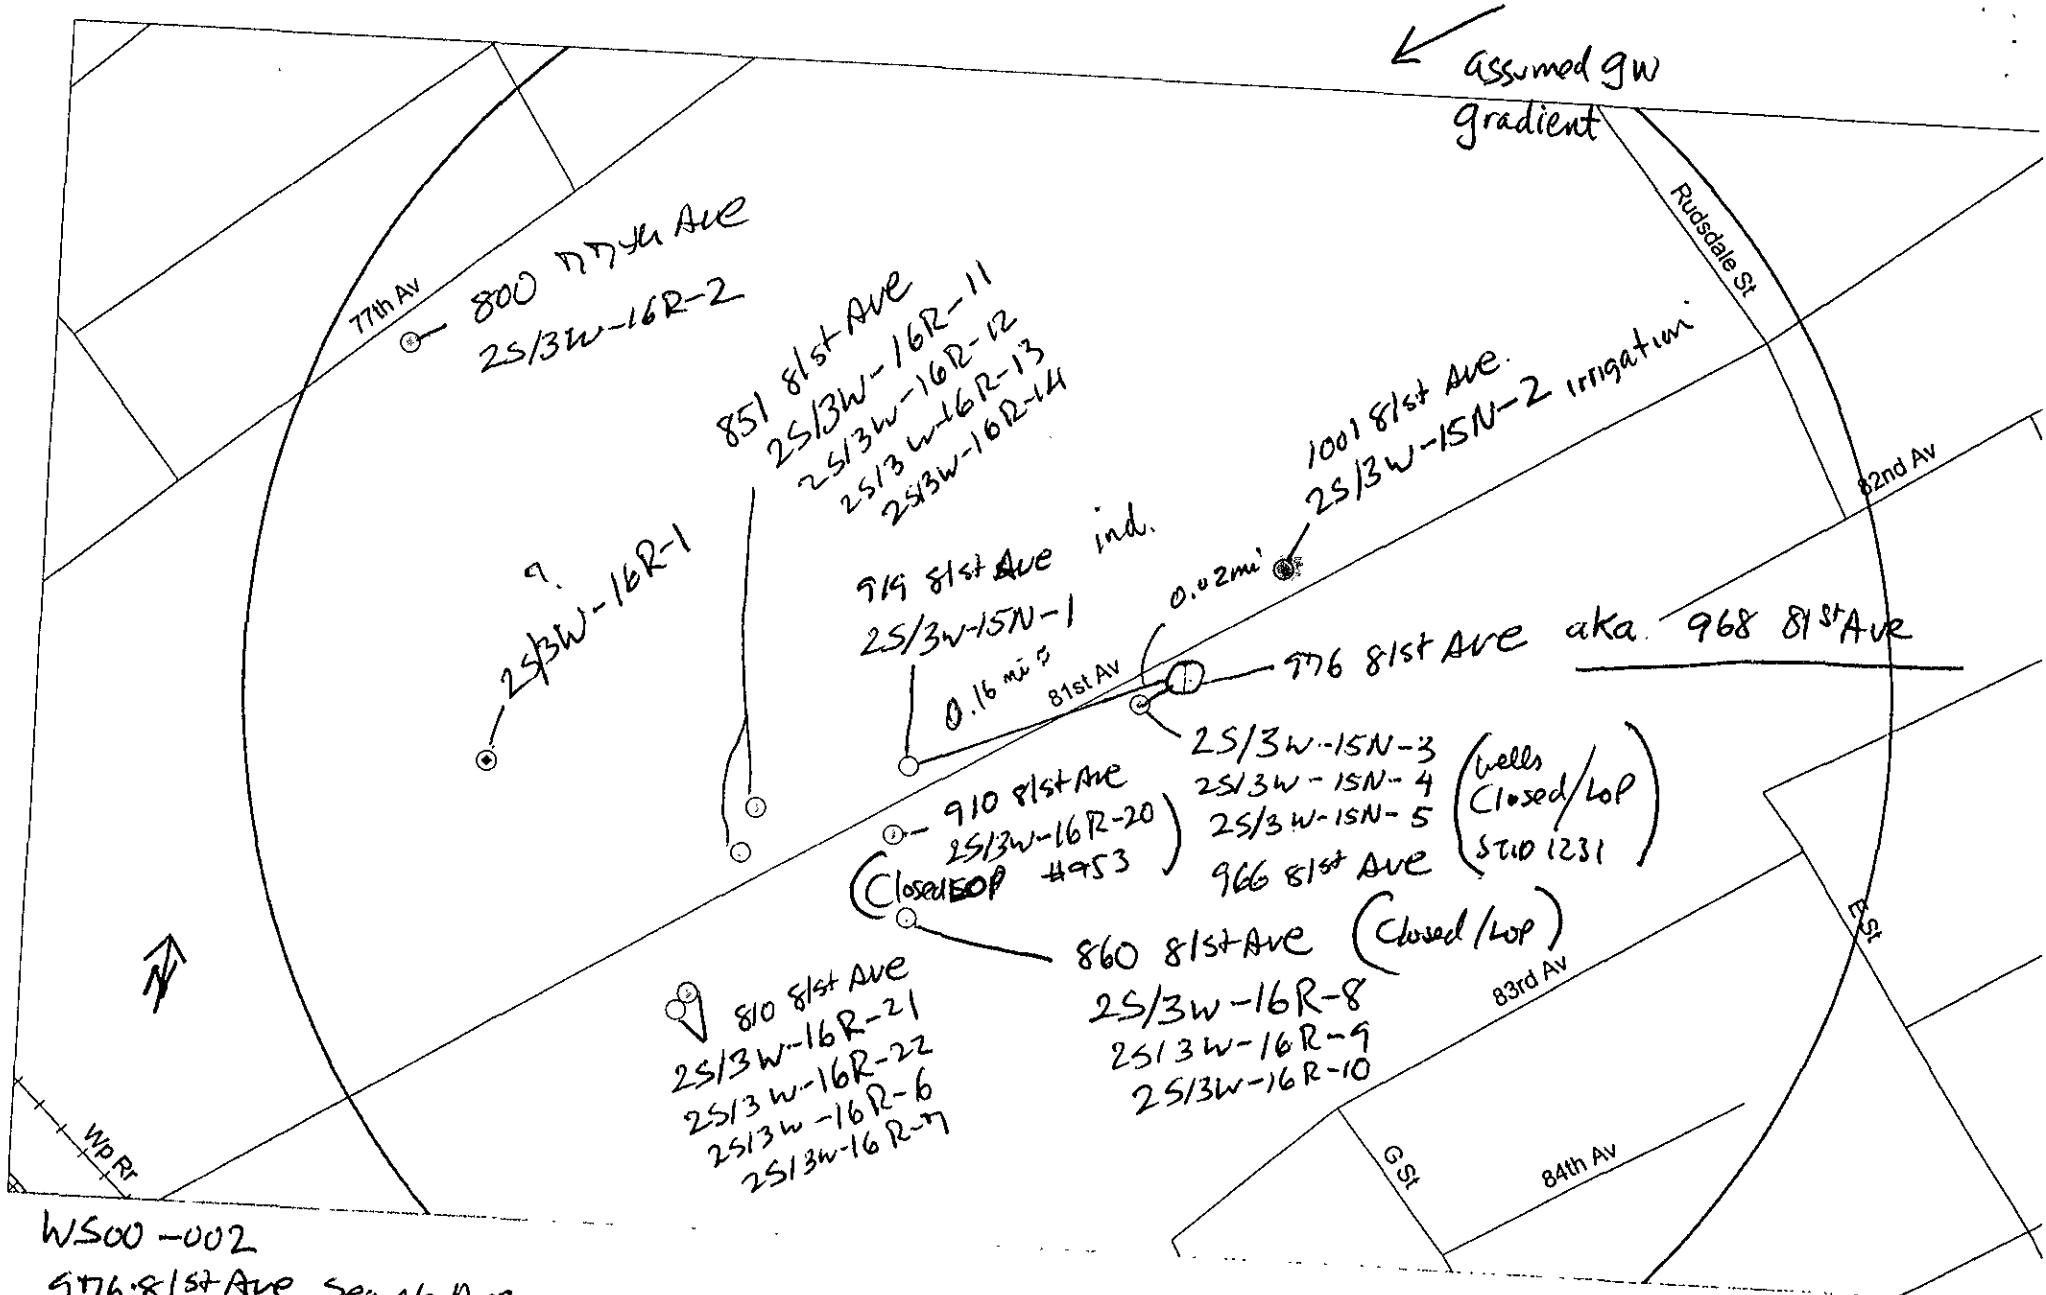 assumed gw
gradient
Rudsdale St
77th Av
800 77th Ave
2S/3W-16R-2
851 81st Ave
2S/3W-16R-11
2S/3W-16R-12
2S/3W-16R-13
2S/3W-16R-14
1001 81st Ave.
2S/3W-15N-2 irrigation
82nd Av
?
2S/3W-16R-1
919 81st Ave ind.
2S/3W-15N-1
0.16 mi
81st Av
0.02mi
976 81st Ave aka. 968 81st Ave
2S/3W-15N-3
2S/3W-15N-4
2S/3W-15N-5
966 81st Ave
(wells
Closed/LOP
STID 1231)
910 81st Ave
2S/3W-16R-20
(Closed LOP #953)
860 81st Ave (Closed/LOP)
2S/3W-16R-8
2S/3W-16R-9
2S/3W-16R-10
E St
83rd Av
N
810 81st Ave
2S/3W-16R-21
2S/3W-16R-22
2S/3W-16R-6
2S/3W-16R-7
Wp Rr
G St
84th Av
WS00-002
976 81st Ave